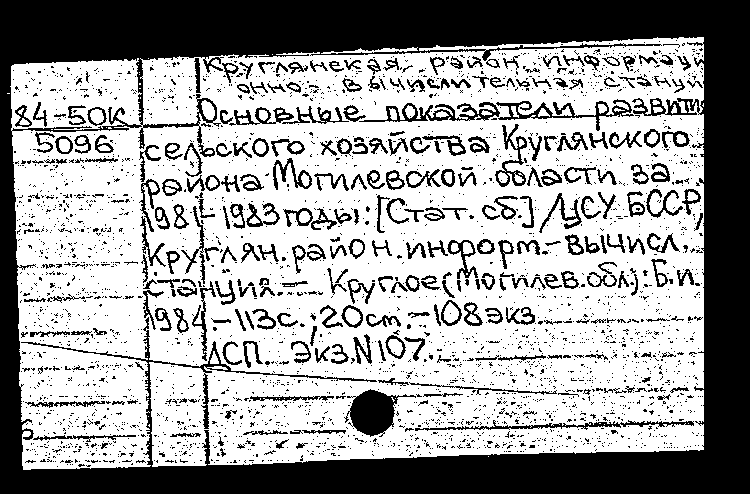 Круглянская район. информаци
онно-вычислительная станци
84-50К Основные показатели развития
5096 сельского хозяйства Круглянского
района Могилевской области за
1981-1983 годы: [Стат. сб.] /ЦСУ БССР,
Круглян. район. информ.-вычисл.
станция. - Круглое (Могилев. обл.): Б.и.
1984. - 113 с.; 20 см. - 108 экз.
ДСП. Экз. N 107.